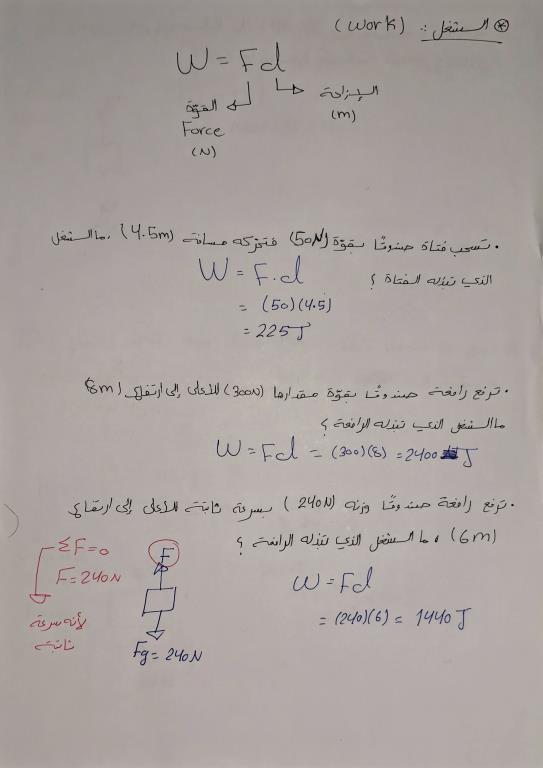 ⊛ الشغل :. (Work)
W = Fd
القوّة الإزاحة
Force (m)
(N)
. تسحب فتاة صندوقًا بقوّة (50N) فتحرّكه مسافة (4.5m) ، ما الشغل
الذي تبذله الفتاة ؟
W = F.d
= (50)(4.5)
= 225J
. ترفع رافعة صندوقًا بقوّة مقدارها (300N) للأعلى إلى ارتفاع (8m
ما الشغل الذي تبذله الرافعة ؟
W = Fd = (300)(8) = 2400 J
. ترفع رافعة صندوقًا وزنه (240N) بسرعة ثابتة للأعلى إلى ارتفاع
(6m) ، ما الشغل الذي تبذله الرافعة ؟
ΣF=0
F
F=240N
W = Fd
= (240)(6) = 1440 J
لأنه سرعة
ثابتة
Fg = 240N